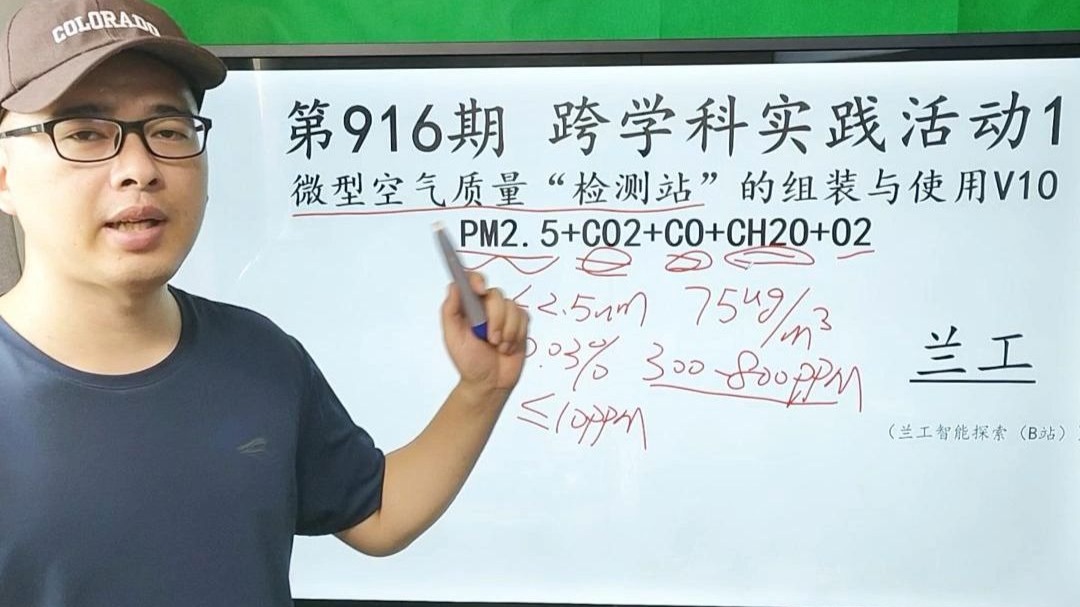 COLORADO
第916期 跨学科实践活动1
微型空气质量“检测站”的组装与使用V10
PM2.5+CO2+CO+CH2O+O2
2.5um 75ug/m³
.03% 300-800PPM
≤10PPM
兰工
（兰工智能探索（B站）